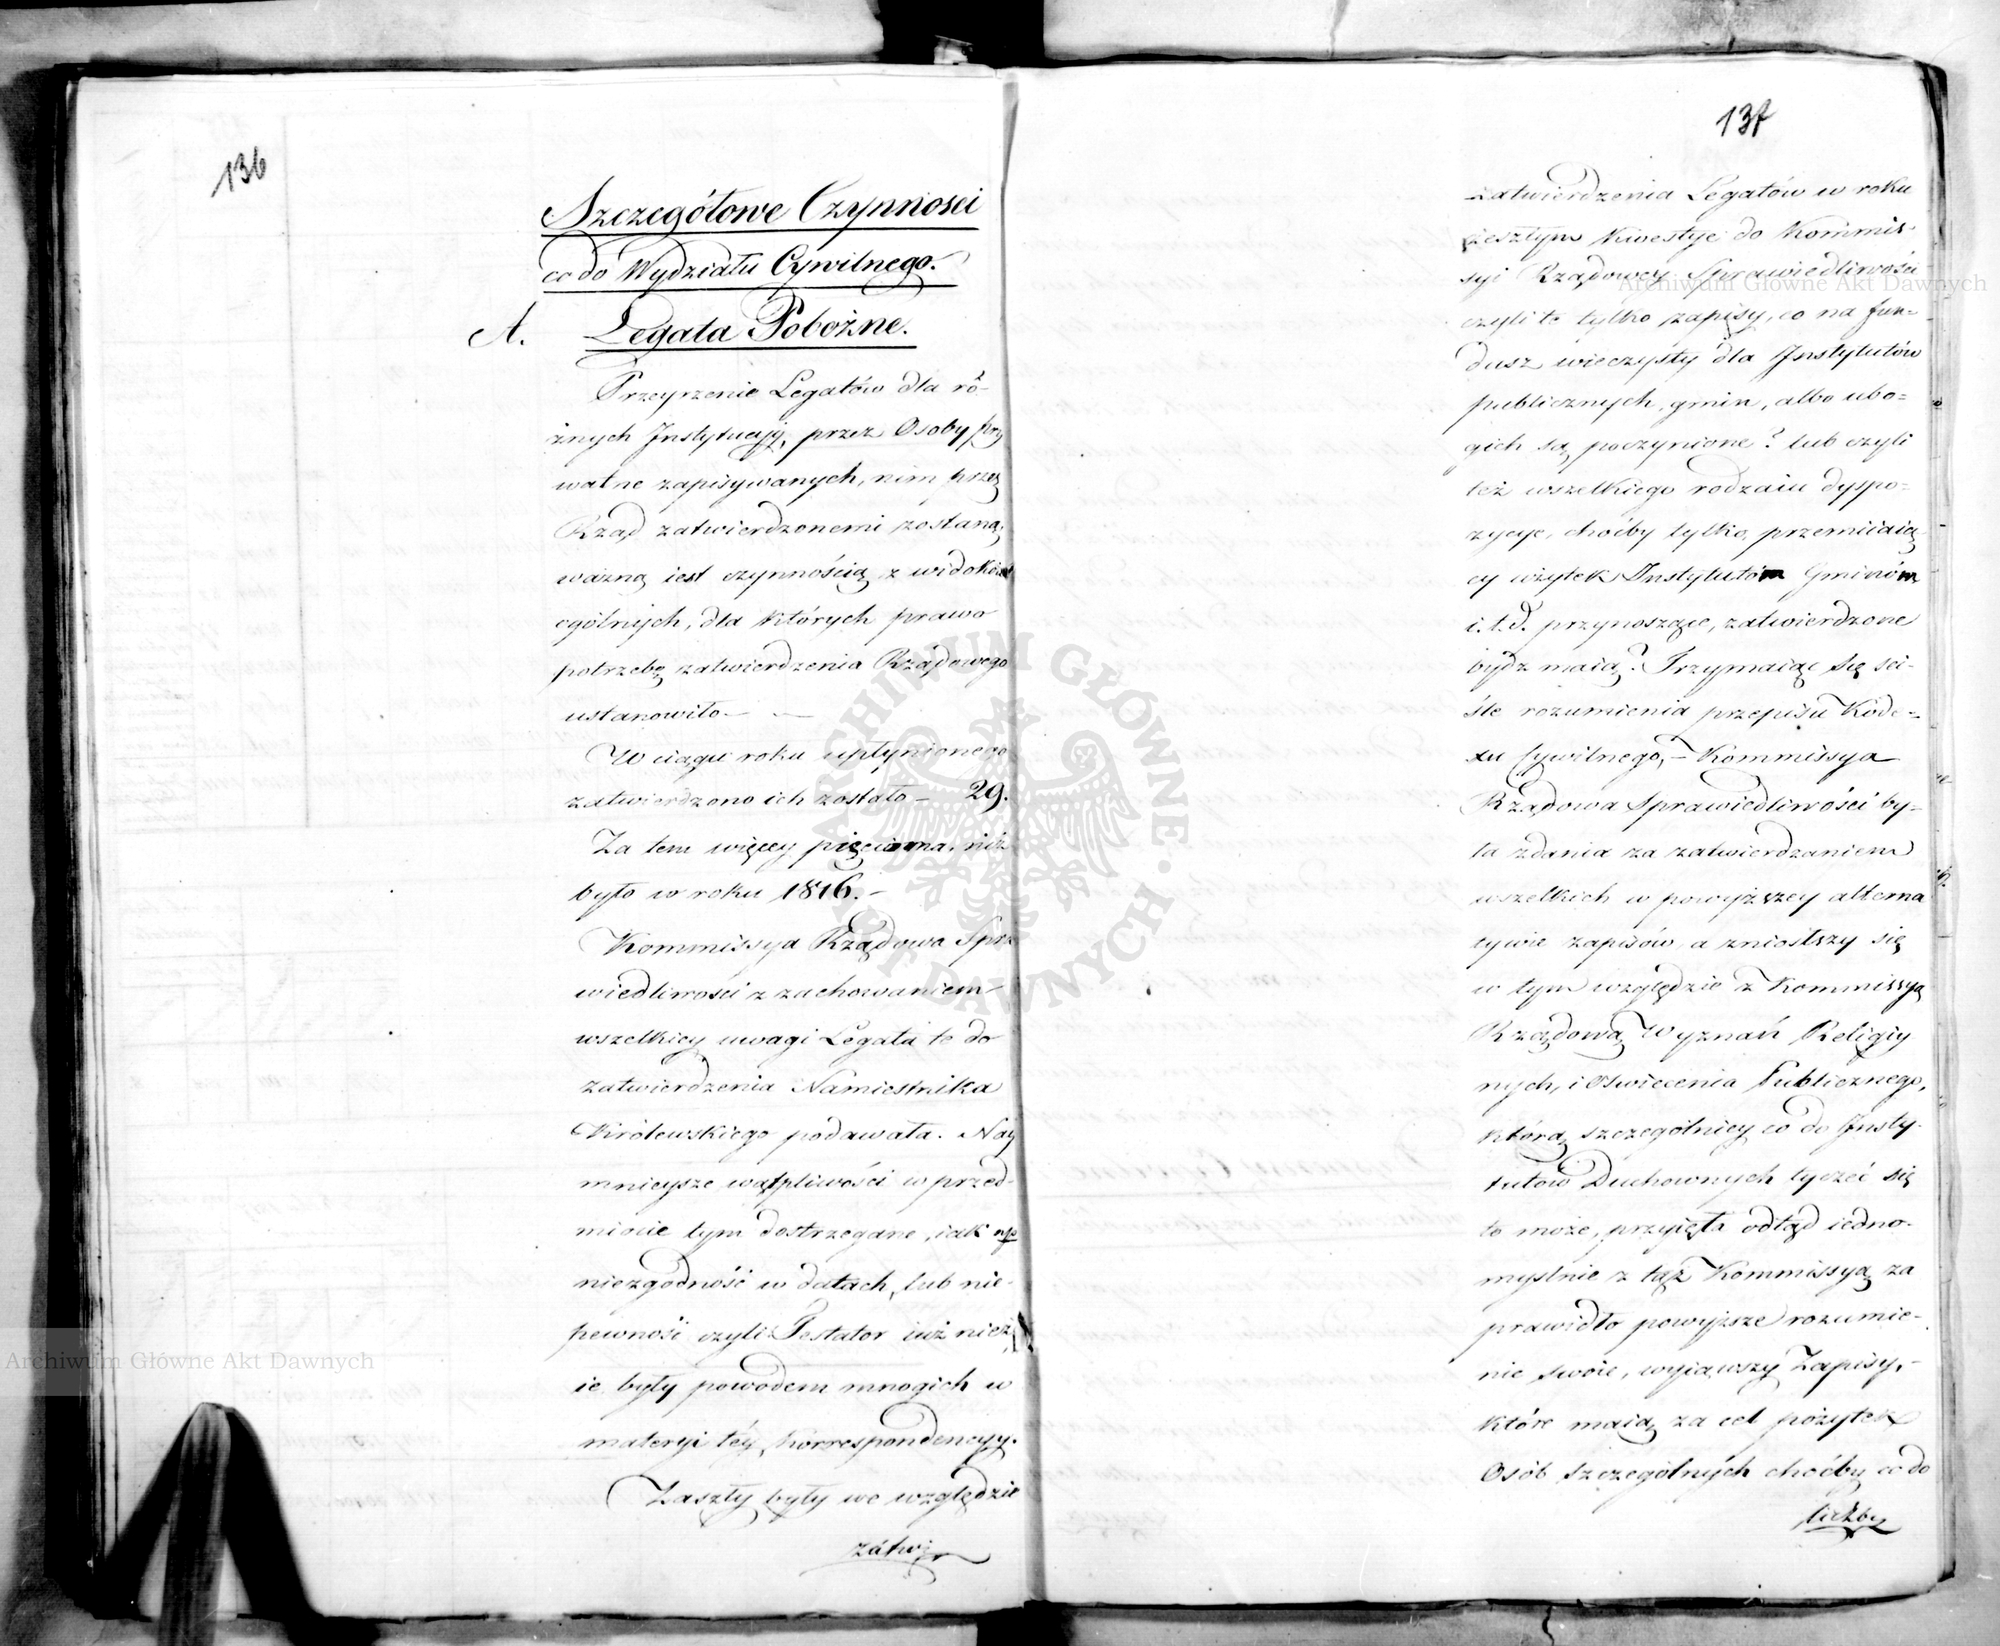 136
Szczegółowe Czynnosci
co do Wydziału Cywilnego.
A. Legata Pobożne.
Przeyrzenie Legatów dla ró-
żnych Instytucyj, przez Osoby pry
watne zapisywanych, nim przez
Rząd zatwierdzonemi zostaną,
ważną iest czynnością z widoków
ogólnych, dla których prawo
potrzebę zatwierdzenia Rządowego
ustanowiło —
W ciągu roku upłynionego
zatwierdzono ich zostało — 29.
Za tem więcey pięcioma, niż
było w roku 1816. —
Kommissya Rządowa Spra
wiedliwosci z zachowaniem
wszelkiey uwagi Legata te do
zatwierdzenia Namiestnika
Królewskiego podawała. Nay
mnieysze wątpliwości w przed-
miocie tym dostrzegane, iak np
niezgodność w datach, lub nie-
pewność czyli Testator iuż nieży
ie były powodem mnogich w
materyi téy korrespondencyy.
Zaszły były we względzie
zatwier
137
zatwierdzenia Legatów w roku
zeszłym kwestye do Kommis-
syi Rządowey Sprawiedliwości
czyli te tylko zapisy, co na fun-
dusz wieczysty dla Instytutów
publicznych, gmin, albo ubo-
gich są poczynione? lub czyli
też wszelkiego rodzaiu dyspo-
zycye, choćby tylko przemiiaią
cy użytek Instytutóm Gminóm
i.t.d. przynoszące, zatwierdzone
bydź maią? Trzymaiąc się ści-
śle rozumienia przepisu Kode-
xu Cywilnego, — Kommissya
Rządowa Sprawiedliwości by-
ła zdania za zatwierdzaniem
wszelkich w powyższey alterna
tywie zapisów, a zniosłszy się
w tym względzie z Kommissyą
Rządową Wyznań Religiy
nych, i Oswiecenia Publicznego,
którą szczególniey co do Insty-
tutów Duchownych tyczeć się
to może, przyięła odtąd iedno-
myslnie z tąż Kommissyą za
prawidło powyższe rozumie-
nie swoie, wyiąwszy Zapisy, —
które maią za cel pożytek
Osób szczególnych choćby co do
liczby
Archiwum Główne Akt Dawnych
Archiwum Główne Akt Dawnych
ARCHIWUM GŁÓWNE · AKT DAWNYCH ·